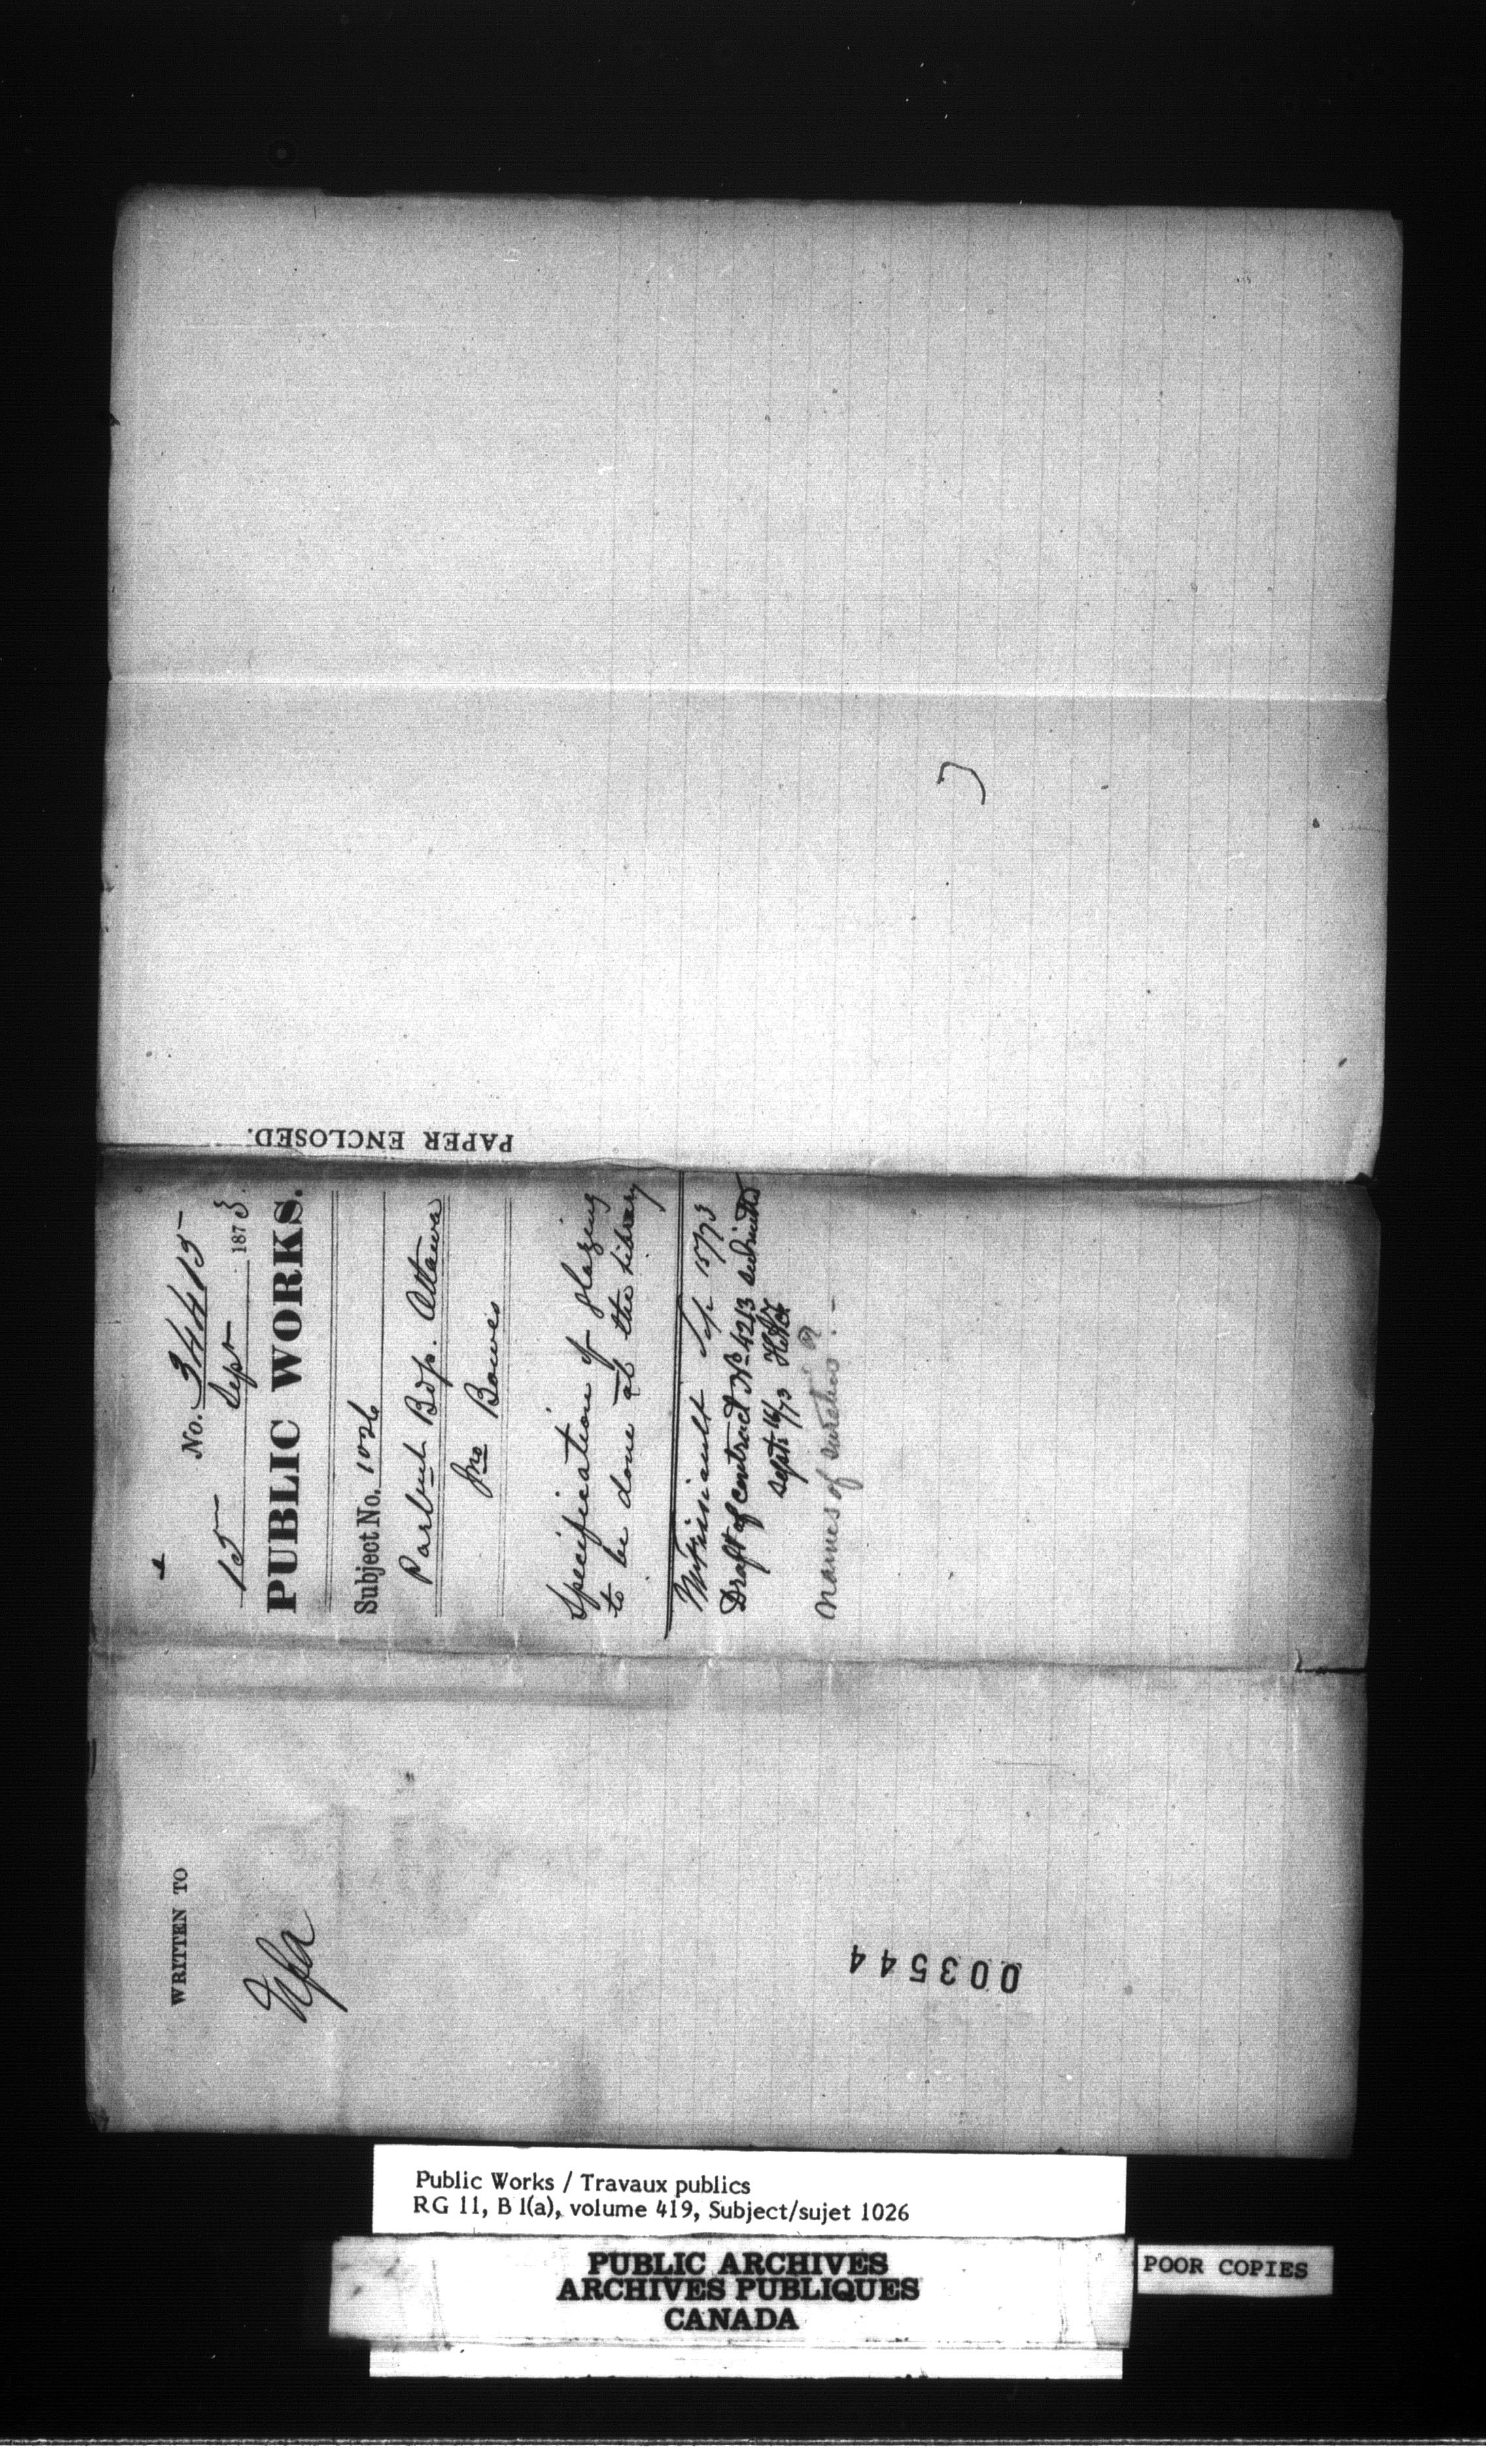 No. 34415
15 Sept 1873.
PUBLIC WORKS.
Subject No. 1026
Parlnt Bdgs. Ottawa
Jno Bowes
Specification of glazing
to be done at the Library
Sep 15/73
Draft of contract No 4213 submitted
Sept. 16/73
Names of sureties?
PAPER ENCLOSED.
WRITTEN TO
003544
Public Works / Travaux publics
RG 11, B 1(a), volume 419, Subject/sujet 1026
PUBLIC ARCHIVES
ARCHIVES PUBLIQUES
CANADA
POOR COPIES